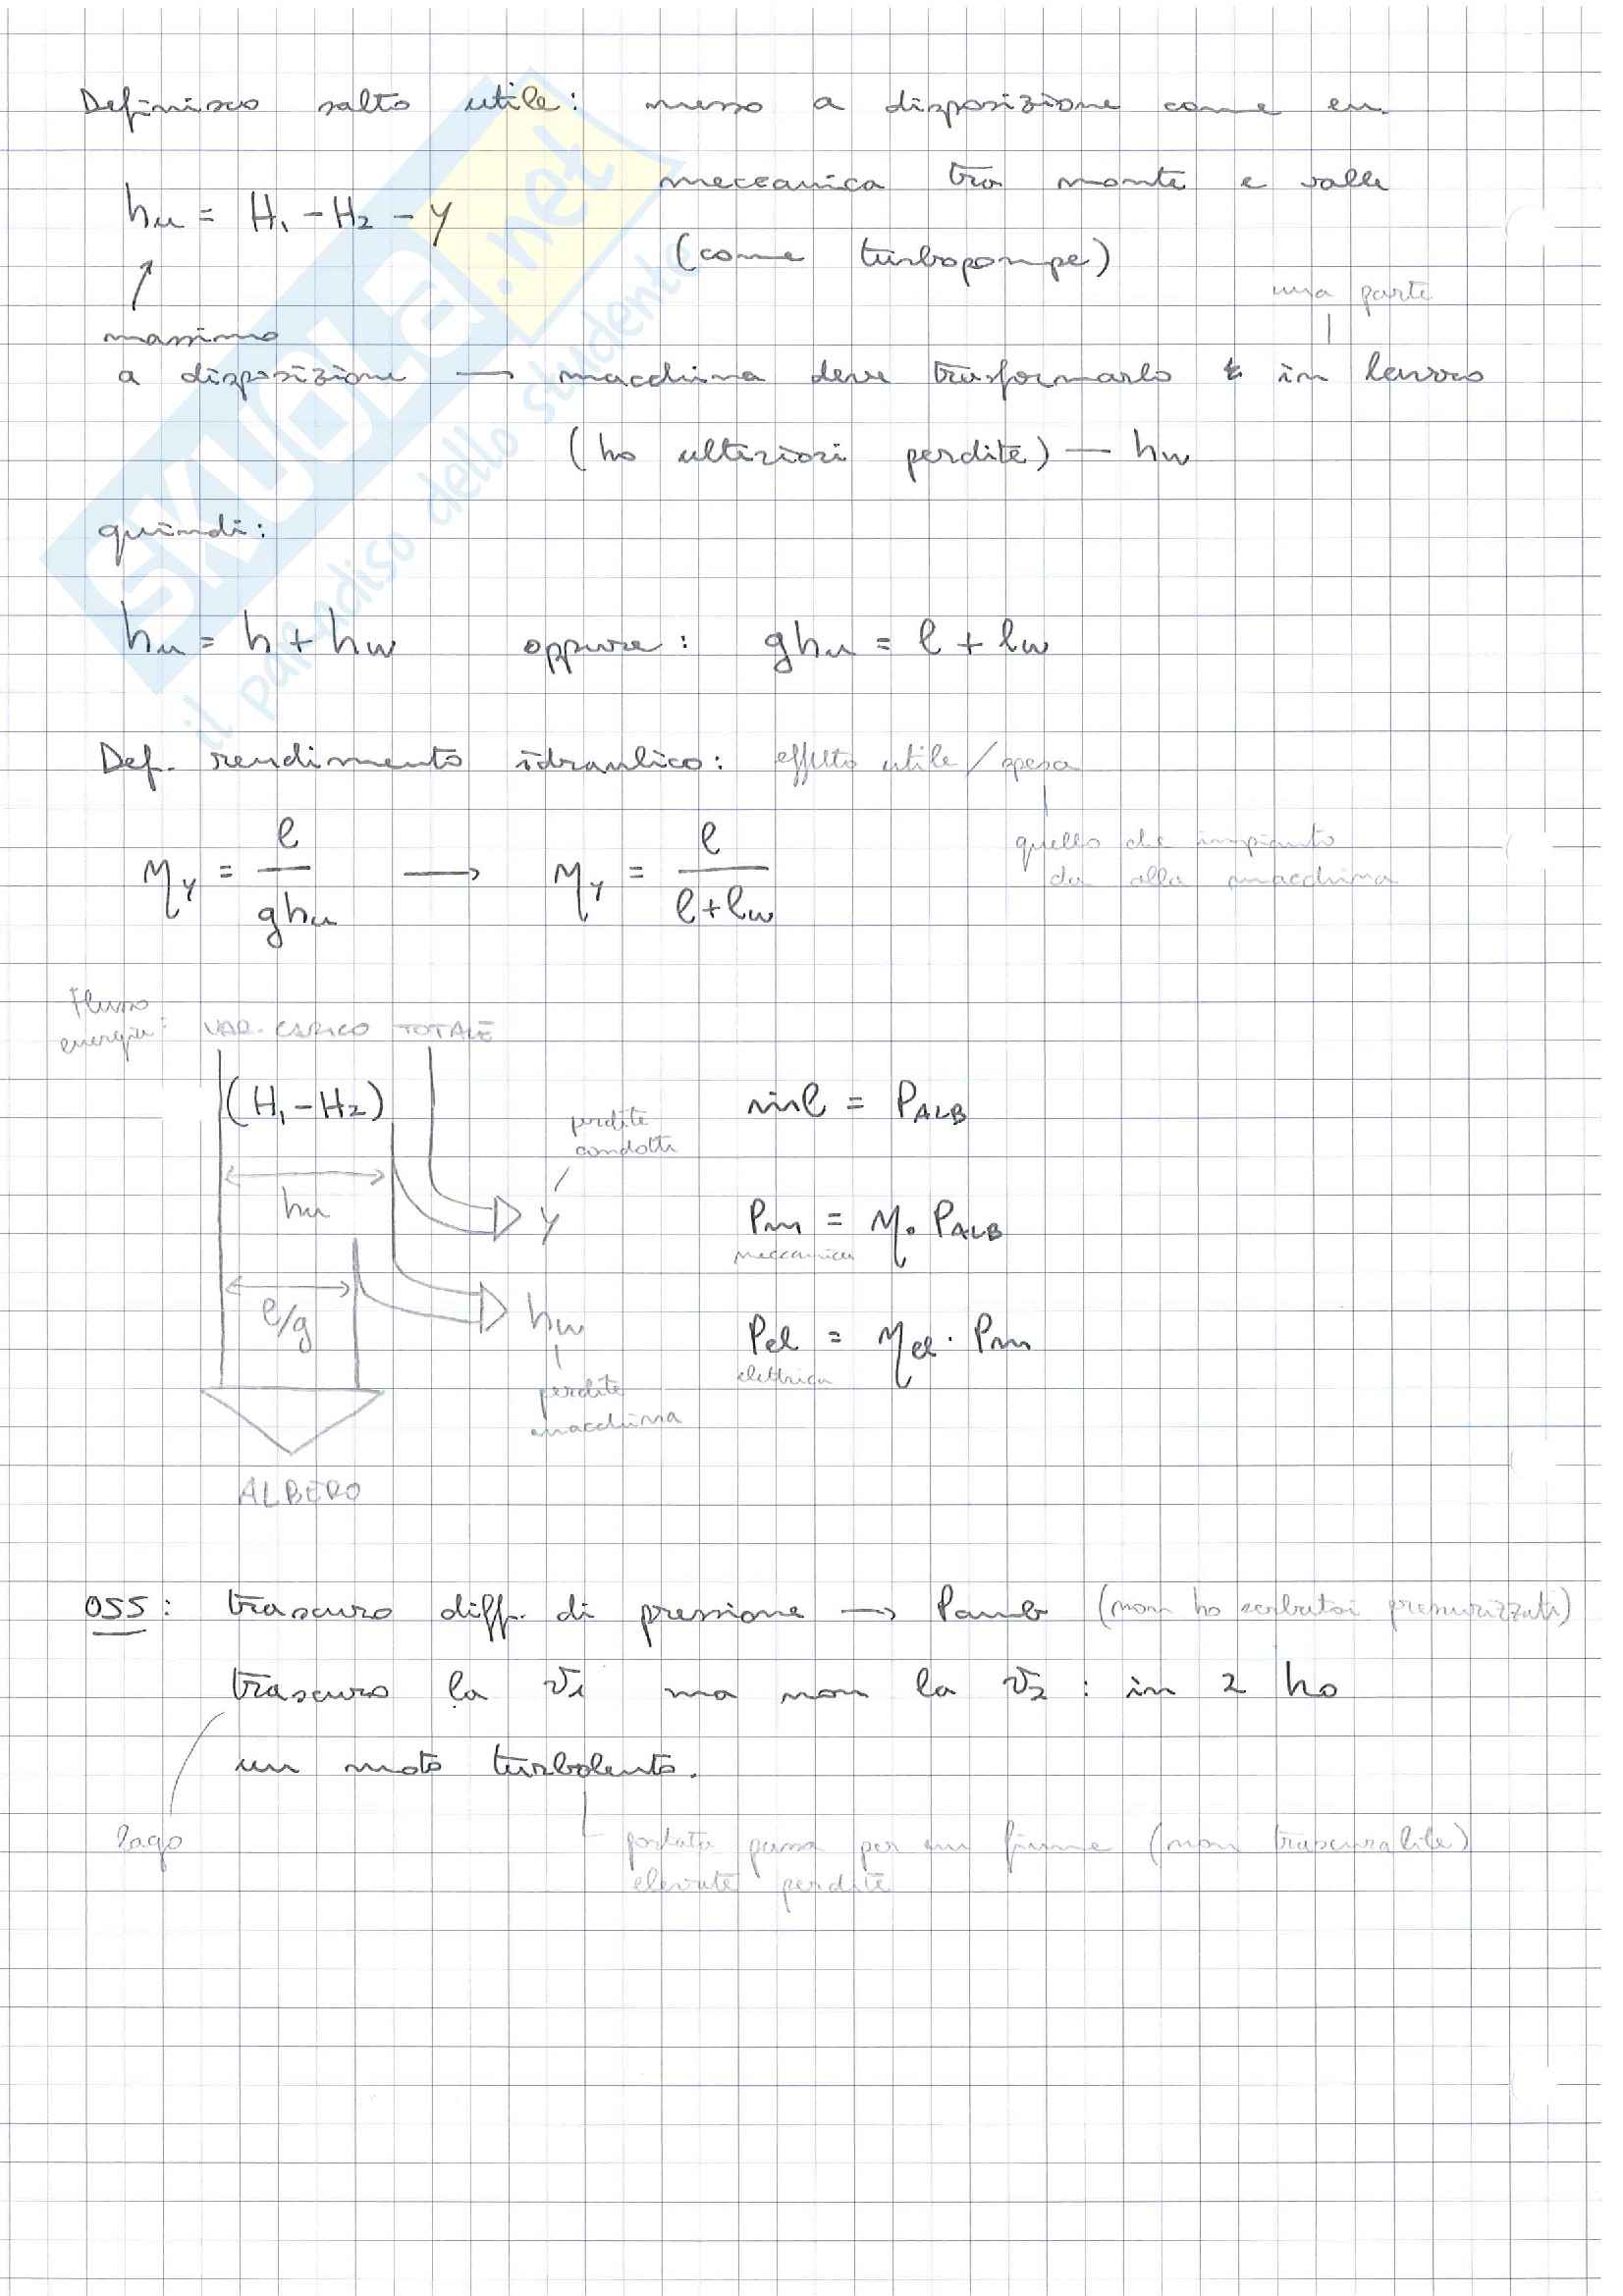 Definisco salto utile: messo a disposizione come en.
meccanica tra monte e valle
hu = H1 - H2 - y
(come turbopompe)
una parte
massimo
a disposizione — macchina deve trasformarlo in lavoro
(ho ulteriori perdite) — hw
quindi:
hu = h + hw oppure: ghu = l + lw
Def. rendimento idraulico: effetto utile/spesa
quello che impianto
da alla macchina
ηy = l/ghu → ηy = l/(l+lw)
Flusso
energia: VAR. CARICO TOTALE
(H1 - H2)
ṁl = PALB
perdite
condotti
hu
y
Pm = η. PALB
meccanica
l/g
hw
Pel = ηel · Pm
elettrica
perdite
macchina
ALBERO
OSS: trascuro diff. di pressione → Pamb (non ho serbatoi pressurizzati)
trascuro la v1 ma non la v2 : in 2 ho
un moto turbolento.
lago
portata passa per un fiume (non trascurabile)
elevate perdite
SKUOLA.net
il paradiso dello studente